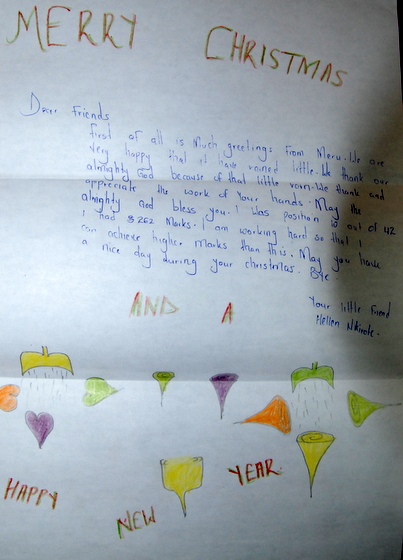 MERRY CHRISTMAS
Dear Friends
first of all is Much greetings From Meru. We are
Very happy that it have rained little. We thank our
almighty God because of that little rain. We thank and
appreciate the work of Your hands. May the
almighty God bless you. I was position 10 out of 42
I had 262 Marks. I am working hard so that I
can achieve higher Marks than this. May you have
a nice day during your christmas. Bye
Your little friend
Hellen
AND A
HAPPY NEW YEAR.